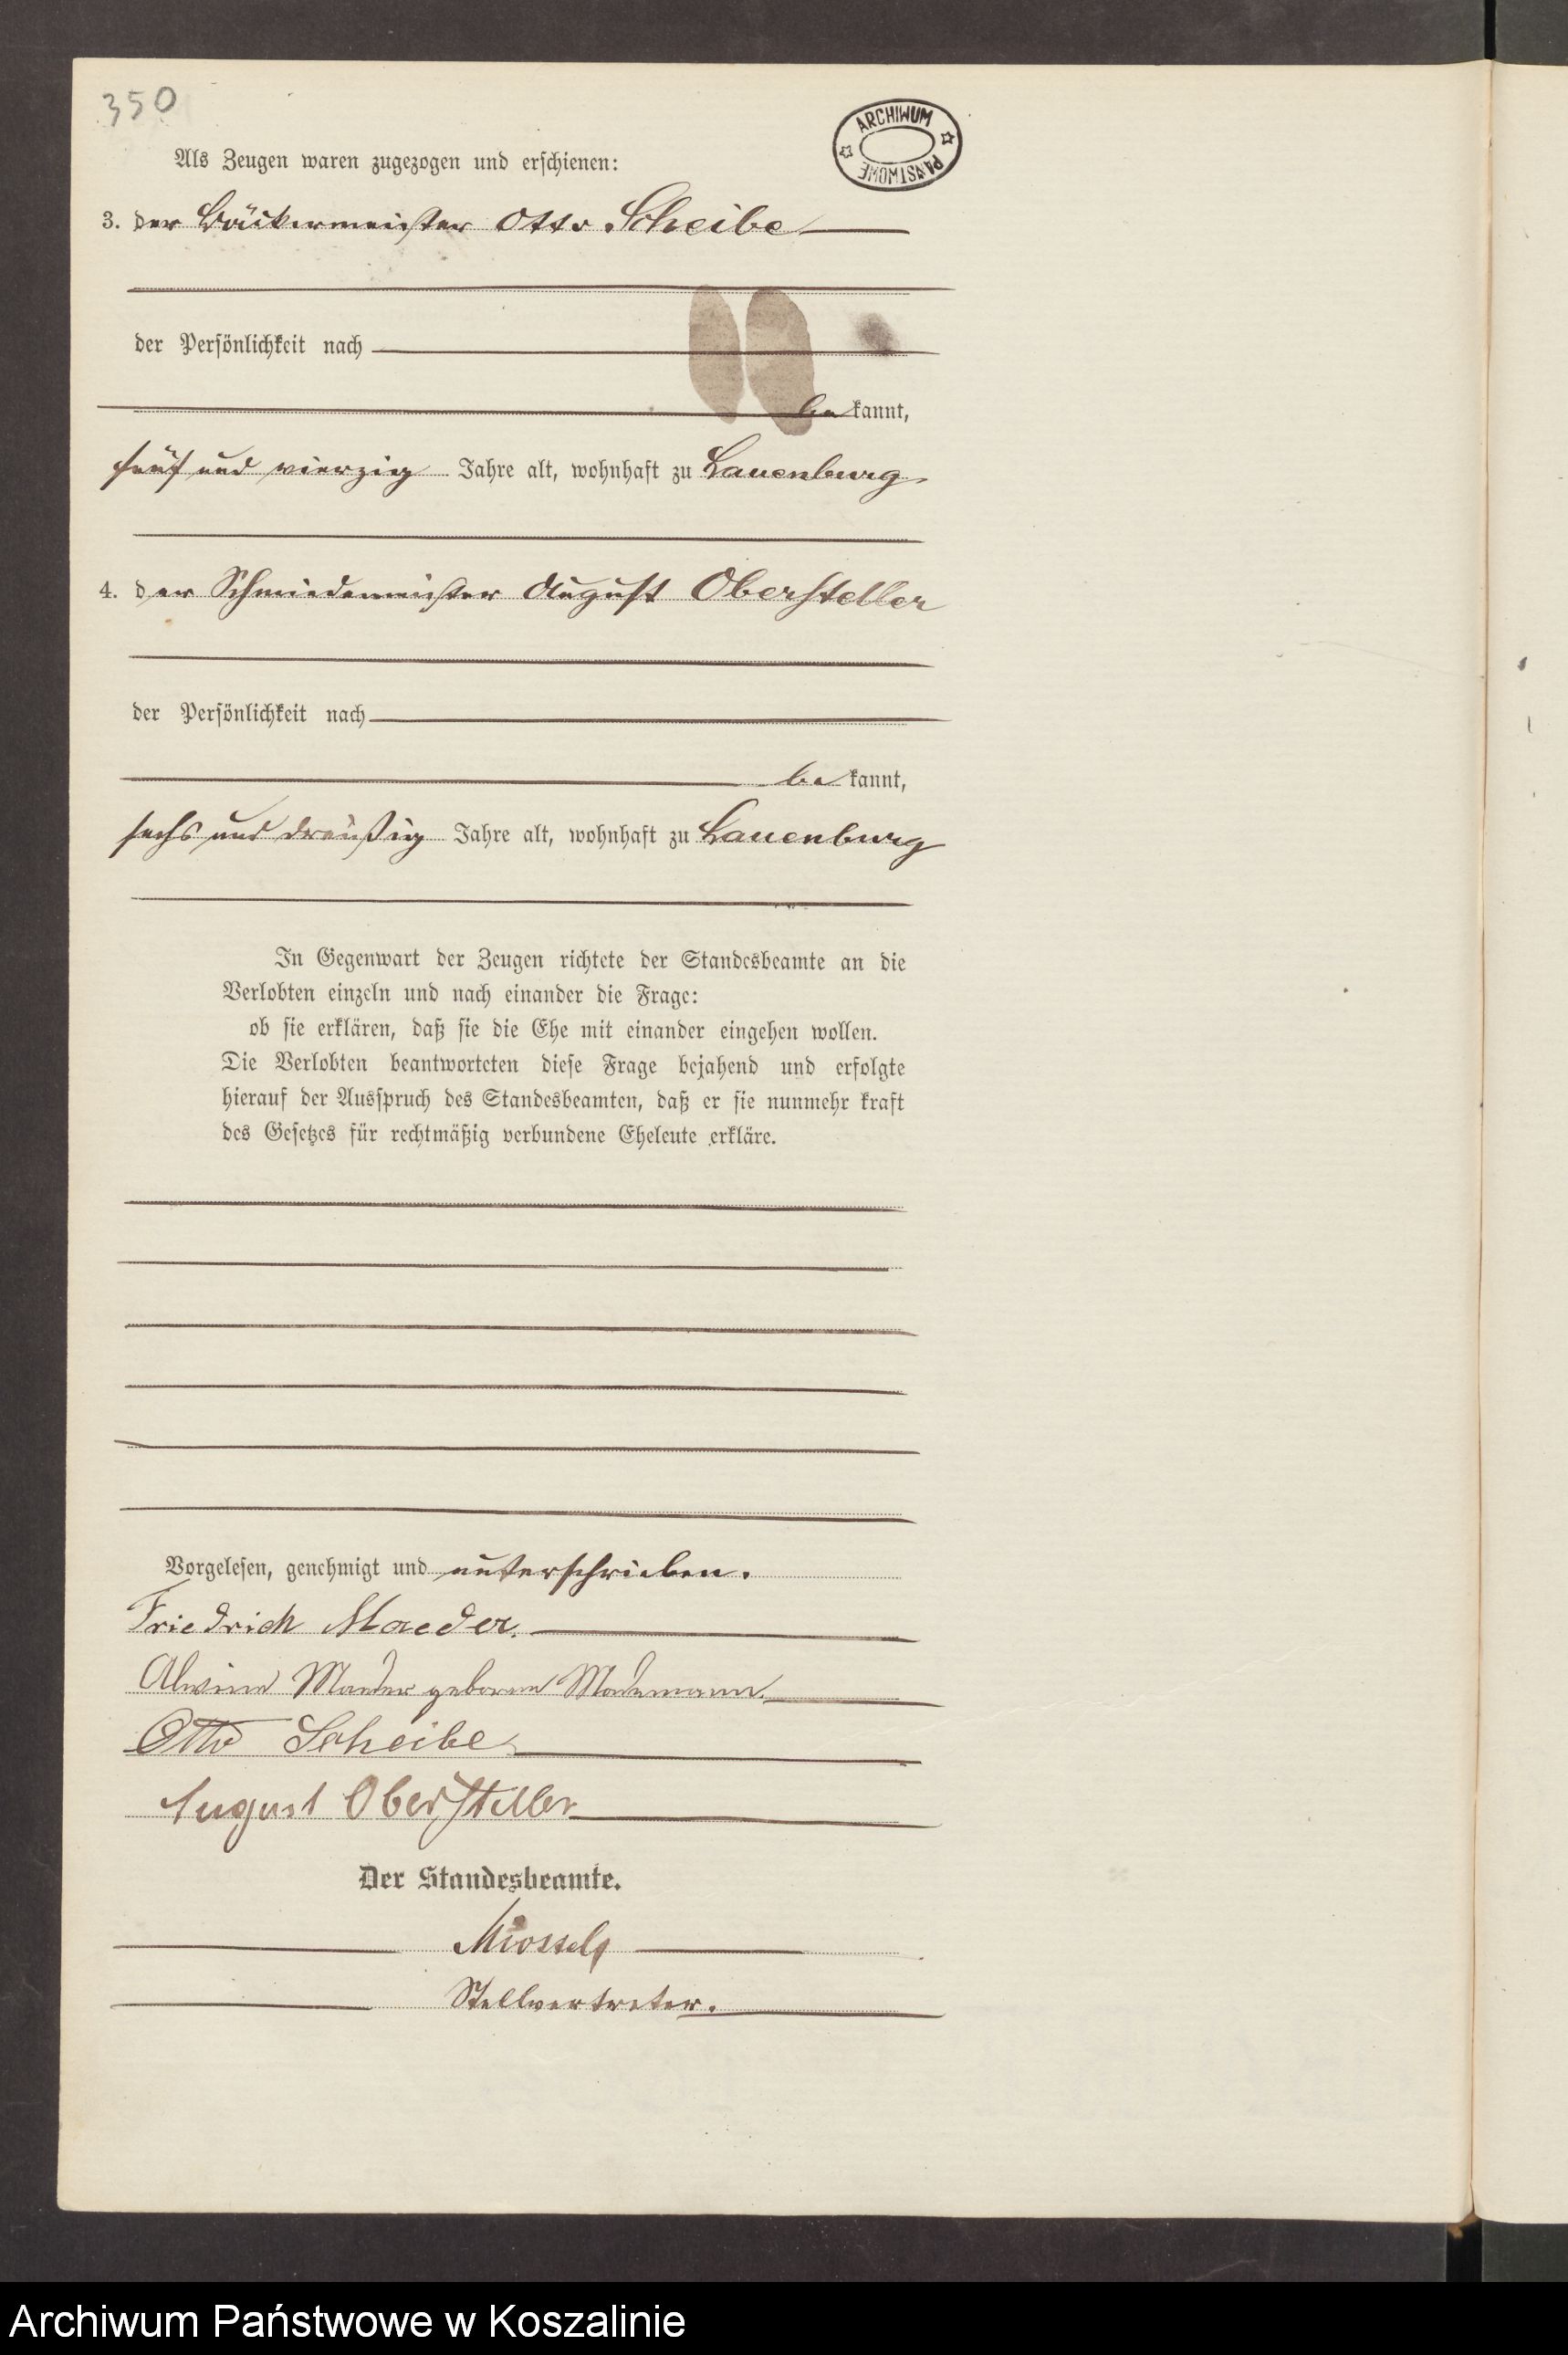 350
ARCHIWUM
PAŃSTWOWE
Als Zeugen waren zugezogen und erschienen:
3. der Bäckermeister Otto Scheibe
der Persönlichkeit nach
be kannt,
fünf und vierzig Jahre alt, wohnhaft zu Lauenburg
4. der Schmiedemeister August Obersteller
der Persönlichkeit nach
be kannt,
sechs und dreißig Jahre alt, wohnhaft zu Lauenburg
In Gegenwart der Zeugen richtete der Standesbeamte an die
Verlobten einzeln und nach einander die Frage:
ob sie erklären, daß sie die Ehe mit einander eingehen wollen.
Die Verlobten beantworteten diese Frage bejahend und erfolgte
hierauf der Ausspruch des Standesbeamten, daß er sie nunmehr kraft
des Gesetzes für rechtmäßig verbundene Eheleute erkläre.
Vorgelesen, genehmigt und unterschrieben.
Friedrich Maeder.
Maeder geborene
Otto Scheibe
August Obersteller
Der Standesbeamte.
Stellvertreter.
Archiwum Państwowe w Koszalinie